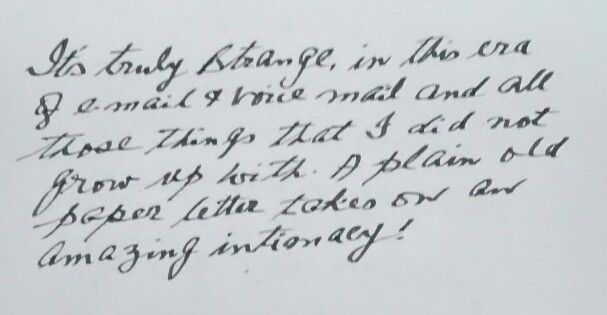 It's truly strange, in this era
of e-mail & voice mail and all
those things that I did not
grow up with. A plain old
paper letter takes on an
amazing intionacy!